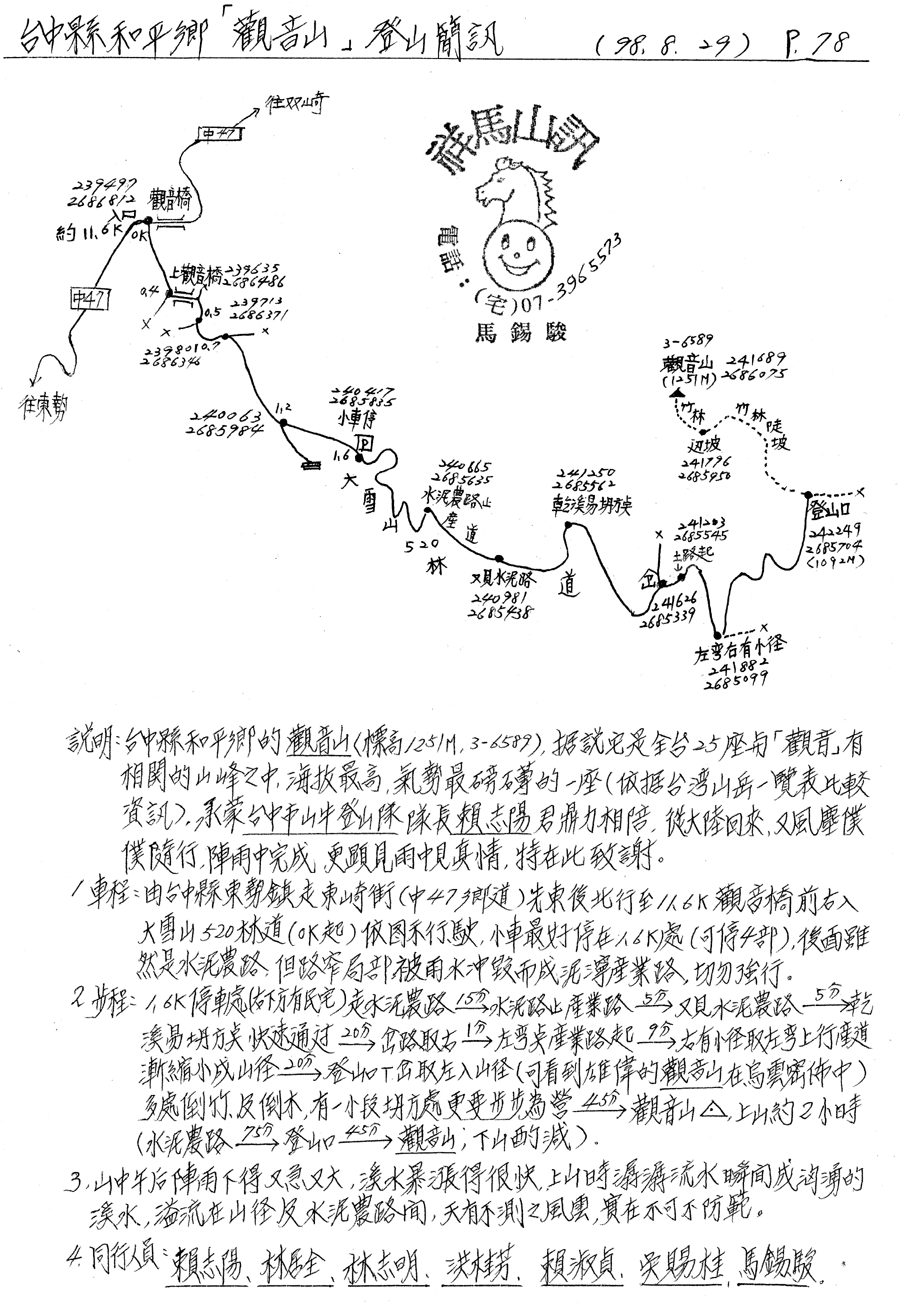 台中縣和平鄉「觀音山」登山簡訊 (98.8.29) P.78
往双崎
中47
239497
2686812
觀音橋
入口
約11.6K
0K
中47
往東勢
上觀音橋
239635
2686486
0.4
239713
2686371
0.5
0.7
239801
2686346
240063
2685984
1.2
240417
2685835
小車停
P
1.6
大雪山520林道
240665
2685635
水泥農路止
産道
又見水泥路
240981
2685438
241250
2685562
乾溪易坍方
241203
2685545
土路起
岔
241626
2685339
左弯右有小径
241882
2685099
登山口
242249
2685704
(1092M)
竹林
陡坡
竹林
辺坡
241796
2685950
3-6589
觀音山
(1251M)
241689
2686075
祥馬山訊
電話:(宅)07-3965573
馬錫駿
説明:台中縣和平鄉的觀音山(標高1251M,3-6589),据說它是全台25座与「觀音」有
相関的山峰之中,海拔最高,氣勢最磅礡的一座(依据台湾山岳一覽表比較
資訊)。承蒙台中市山牛登山隊隊長賴志陽君鼎力相陪,從大陸回來,又風塵僕
僕隨行,陣雨中完成,更顕見雨中見真情,特在此致謝。
1車程:由台中縣東勢鎮走東崎街(中47鄉道)先東後北行至11.6K觀音橋前右入
大雪山520林道(0K起)依图示行駛,小車最好停在1.6K處(可停4部),後面雖
然是水泥農路、但路窄局部被雨水沖毀而成泥濘産業路,切勿強行。
2步程:1.6K停車處(右下方有民宅)走水泥農路15分→水泥路止産業路5分→又見水泥農路5分→乾
溪易坍方快速通過20分→岔路取右1分→左弯産業路起9分→右有小径取左弯上行産道
漸縮小成山径20分→登山口丅岔取左入山径(可看到雄偉的觀音山在烏雲密佈中)
多處倒竹及倒木,有一小段坍方處更要步步為營45分→觀音山△,上山約2小時
(水泥農路75分→登山口45分→觀音山;下山酌減)。
3,山中午后陣雨下得又急又大,溪水暴漲得很快,上山時潺潺流水瞬間成洶湧的
溪水,溢流在山径及水泥農路間,天有不測之風雲,實在不可不防範。
4.同行人員:賴志陽、林居全、林志明、洪桂芳、賴淑貞、吳賜桂、馬錫駿。